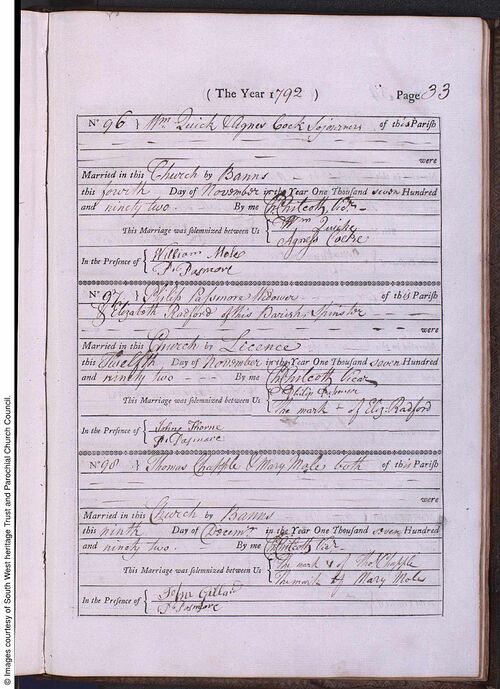 ( The Year 1792 ) Page 33
No 96 } Wm Quick & Agnes Cock Sojourners of this Parish
were
Married in this Church by Banns
this fourth Day of November in the Year One Thousand seven Hundred
and ninety two. By me Chilcott Vicr.
This Marriage was solemnized between Us { Wm Quicke
Agness Cocke
In the Presence of { William Moles
P. Pasmore
No 97 } Philip Passmore Widower of this Parish
& Elizabeth Radford of this Parish Spinster
were
Married in this Church by Licence
this Twelfth Day of November in the Year One Thousand seven Hundred
and ninety two By me Chilcott Vicar
This Marriage was solemnized between Us { Philip
The mark + of Eliz: Radford
In the Presence of { John Thorne
P. Pasmore
No 98 } Thomas Chapple & Mary Mole both of this Parish
were
Married in this Church by Banns
this ninth Day of Decemr in the Year One Thousand seven Hundred
and ninety two. By me Chilcott Vicr.
This Marriage was solemnized between Us { The mark of Tho Chapple
The mark of Mary Moles
In the Presence of { John Gillard
P. Pasmore
© Images courtesy of South West heritage Trust and Parochial Church Council.